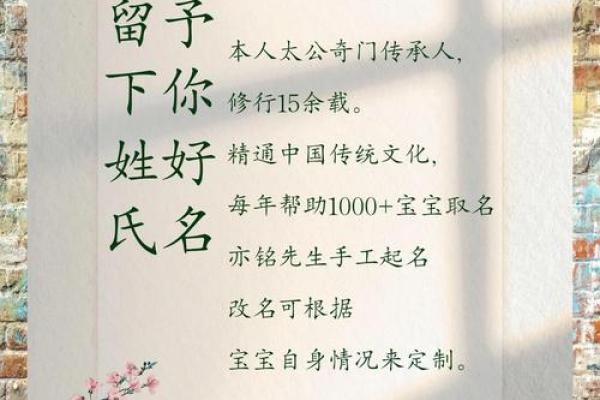 留下姓氏
予你好名
本人太公奇门传承人,
修行15余载。
精通中国传统文化,
每年帮助1000+宝宝取名
亦铭先生手工起名
改名可根据
宝宝自身情况来定制。